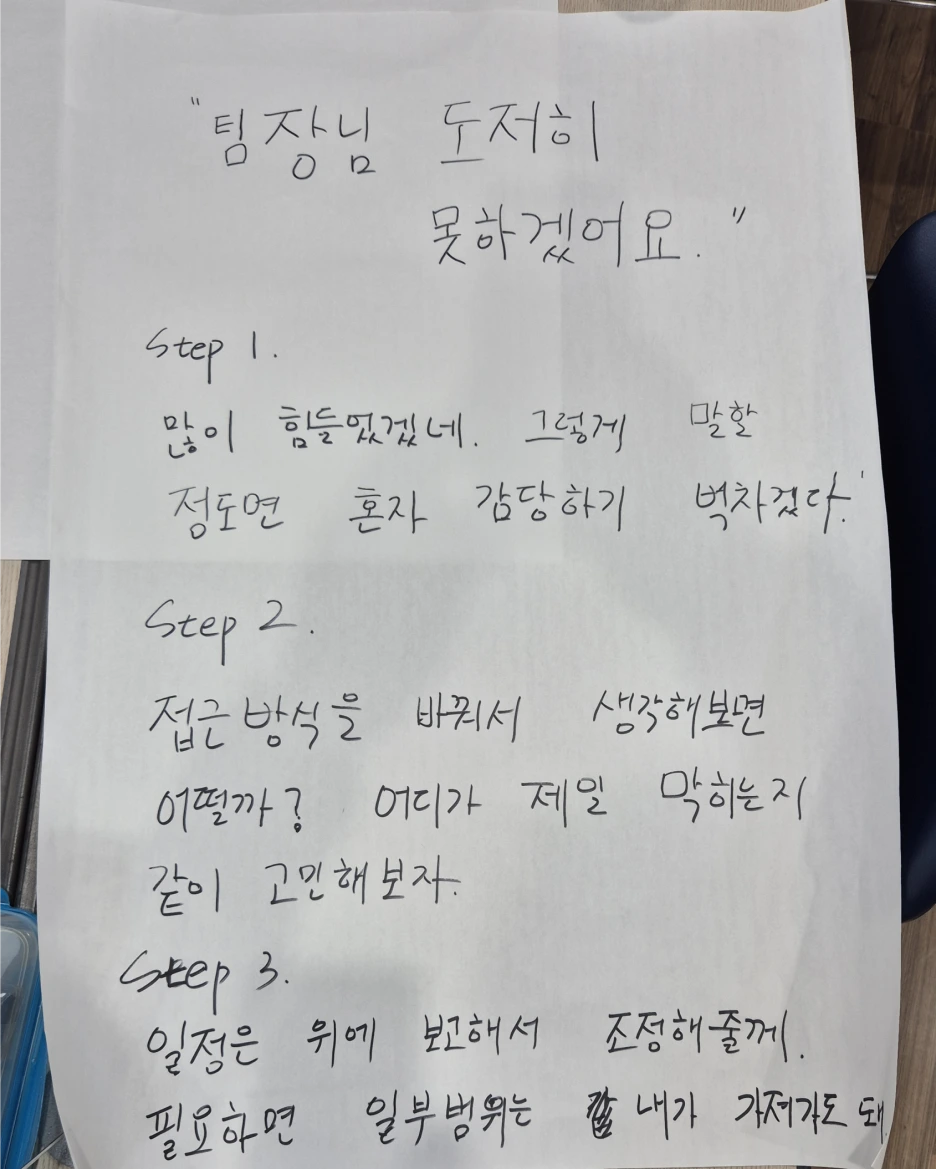 "팀장님 도저히
못하겠어요."
Step 1.
많이 힘들었겠네. 그렇게 말할
정도면 혼자 감당하기 벅차겠다.'
Step 2.
접근 방식을 바꿔서 생각해보면
어떨까? 어디가 제일 막히는지
같이 고민해보자.
Step 3.
일정은 위에 보고해서 조정해줄께.
필요하면 일부범위는 내가 가져가도 돼